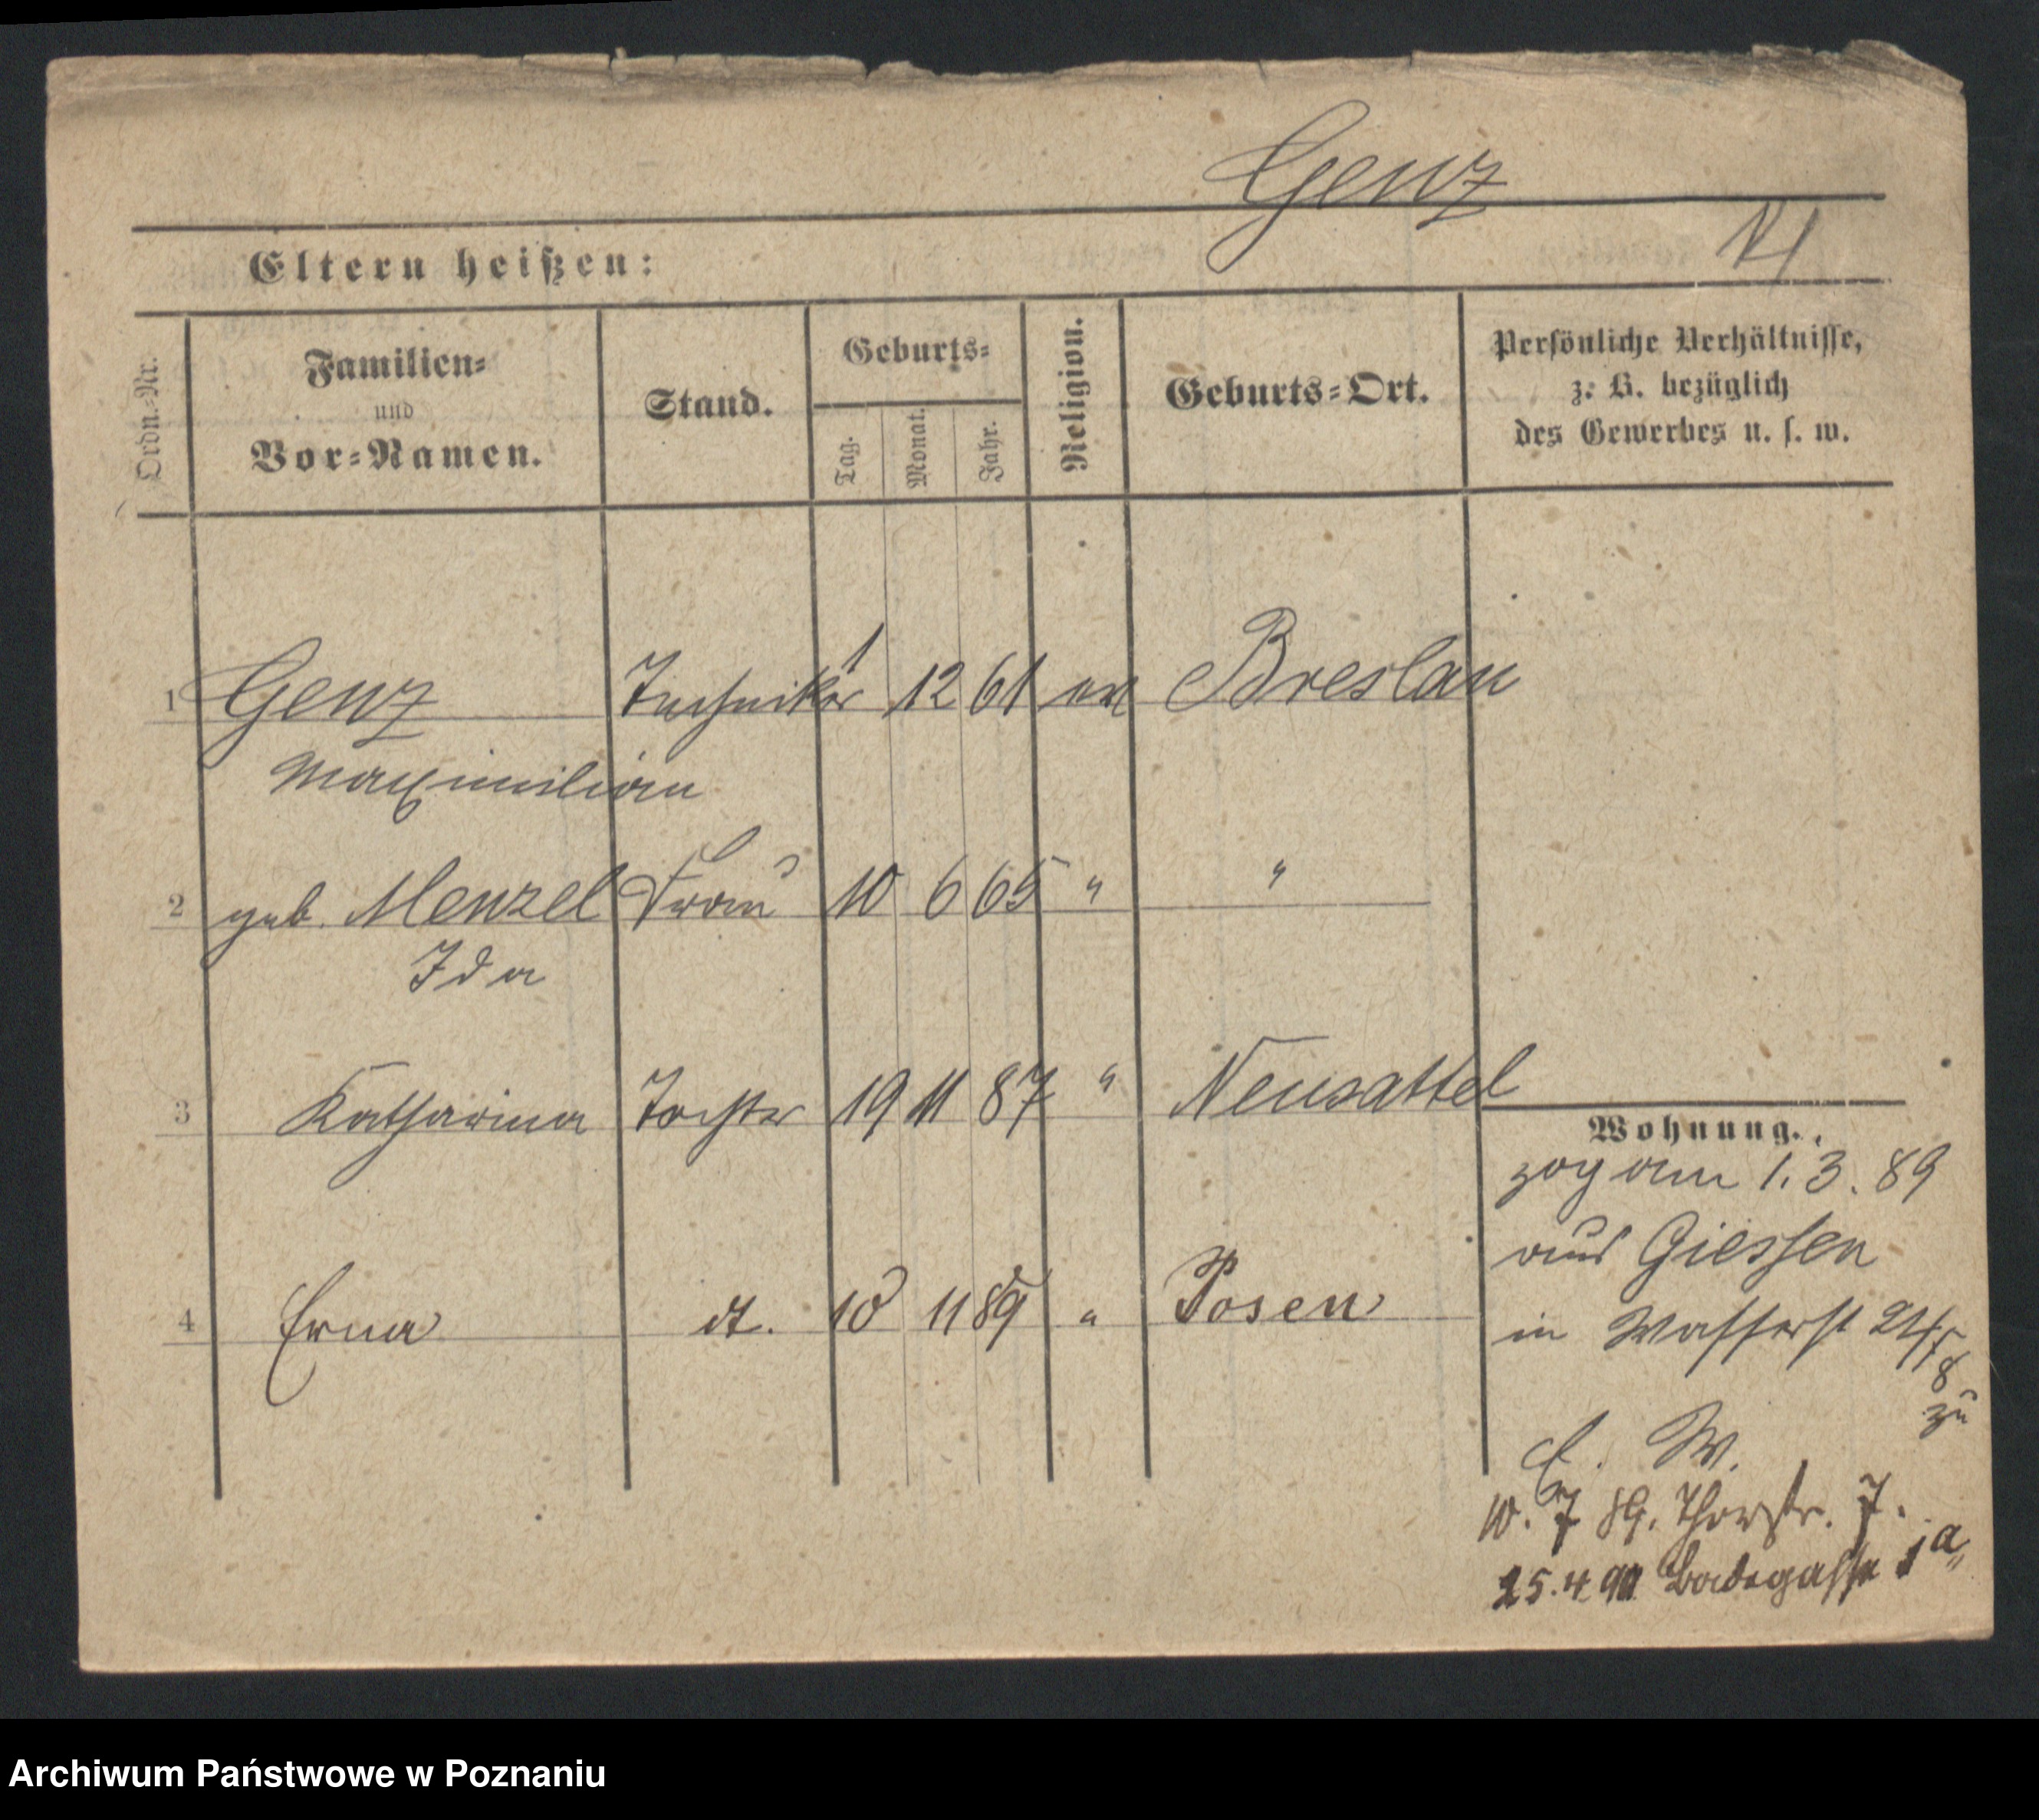 Genz
Eltern heißen:
Ordn.-Nr.
Familien-
und
Vor-Namen.
Stand.
Geburts-
Tag.
Monat.
Jahr.
Religion.
Geburts-Ort.
Persönliche Verhältnisse,
z. B. bezüglich
des Gewerbes u. s. w.
1 Genz Techniker 1 12 61 Breslau
Maximilian
2 geb. Menzel Frau 10 6 65 " "
Ida
3 Katharina Tochter 19 11 87 " Neusattel
4 Erna dt. 10 11 89 " Posen
Wohnung.
zog am 1. 3. 89
aus Giessen
in Wasserst 24/
8
zu
E. W.
10. 7 89. Thorstr. 7.
25. 4 90 Badegasse 1a,,
Archiwum Państwowe w Poznaniu